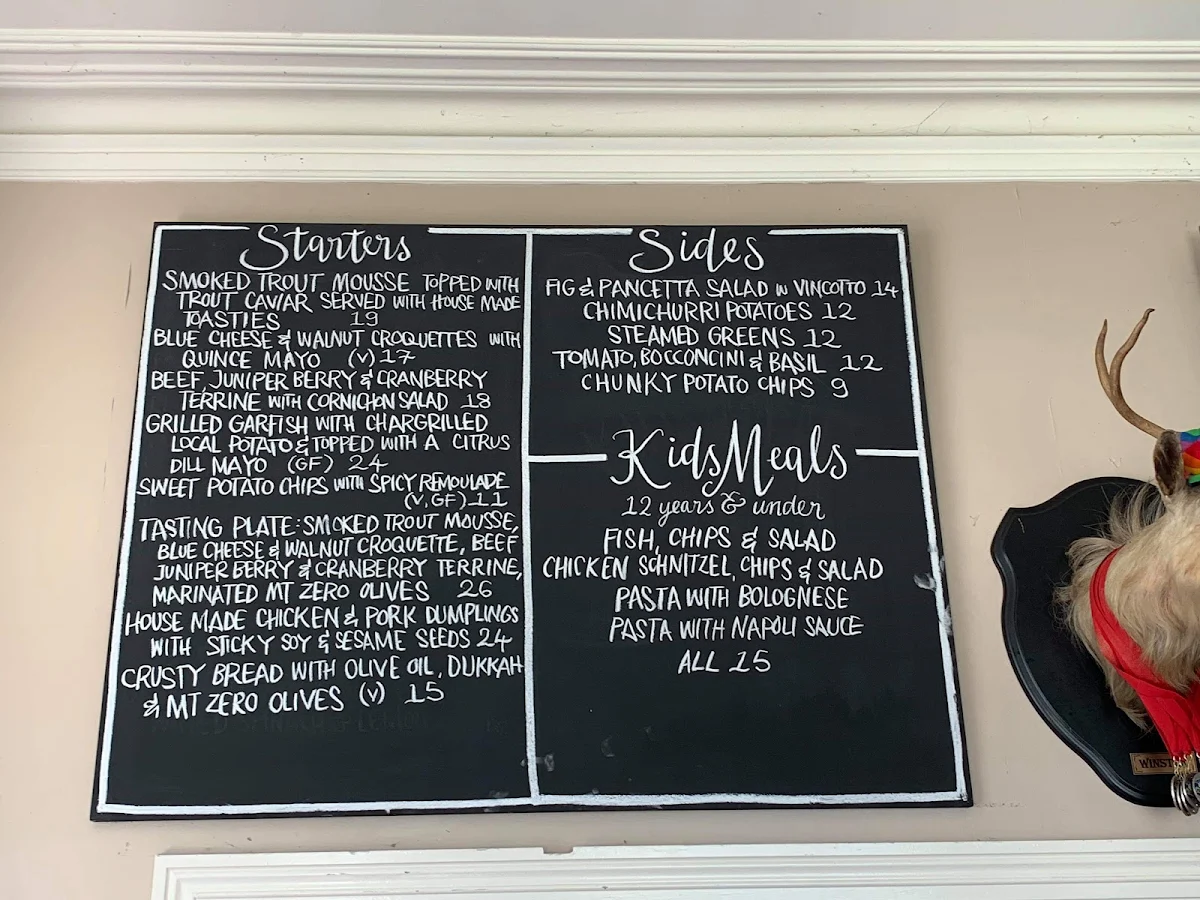 Starters
SMOKED TROUT MOUSSE TOPPED WITH
TROUT CAVIAR SERVED WITH HOUSE MADE
TOASTIES 19
BLUE CHEESE & WALNUT CROQUETTES WITH
QUINCE MAYO (V) 17
BEEF, JUNIPER BERRY & CRANBERRY
TERRINE WITH CORNICHON SALAD 18
GRILLED GARFISH WITH CHARGRILLED
LOCAL POTATO & TOPPED WITH A CITRUS
DILL MAYO (GF) 24
SWEET POTATO CHIPS WITH SPICY REMOULADE
(V, GF) 11
TASTING PLATE: SMOKED TROUT MOUSSE,
BLUE CHEESE & WALNUT CROQUETTE, BEEF
JUNIPER BERRY & CRANBERRY TERRINE,
MARINATED MT ZERO OLIVES 26
HOUSE MADE CHICKEN & PORK DUMPLINGS
WITH STICKY SOY & SESAME SEEDS 24
CRUSTY BREAD WITH OLIVE OIL, DUKKAH
& MT ZERO OLIVES (V) 15
Sides
FIG & PANCETTA SALAD W VINCOTTO 14
CHIMICHURRI POTATOES 12
STEAMED GREENS 12
TOMATO, BOCCONCINI & BASIL 12
CHUNKY POTATO CHIPS 9
Kids Meals
12 years & under
FISH, CHIPS & SALAD
CHICKEN SCHNITZEL, CHIPS & SALAD
PASTA WITH BOLOGNESE
PASTA WITH NAPOLI SAUCE
ALL 15